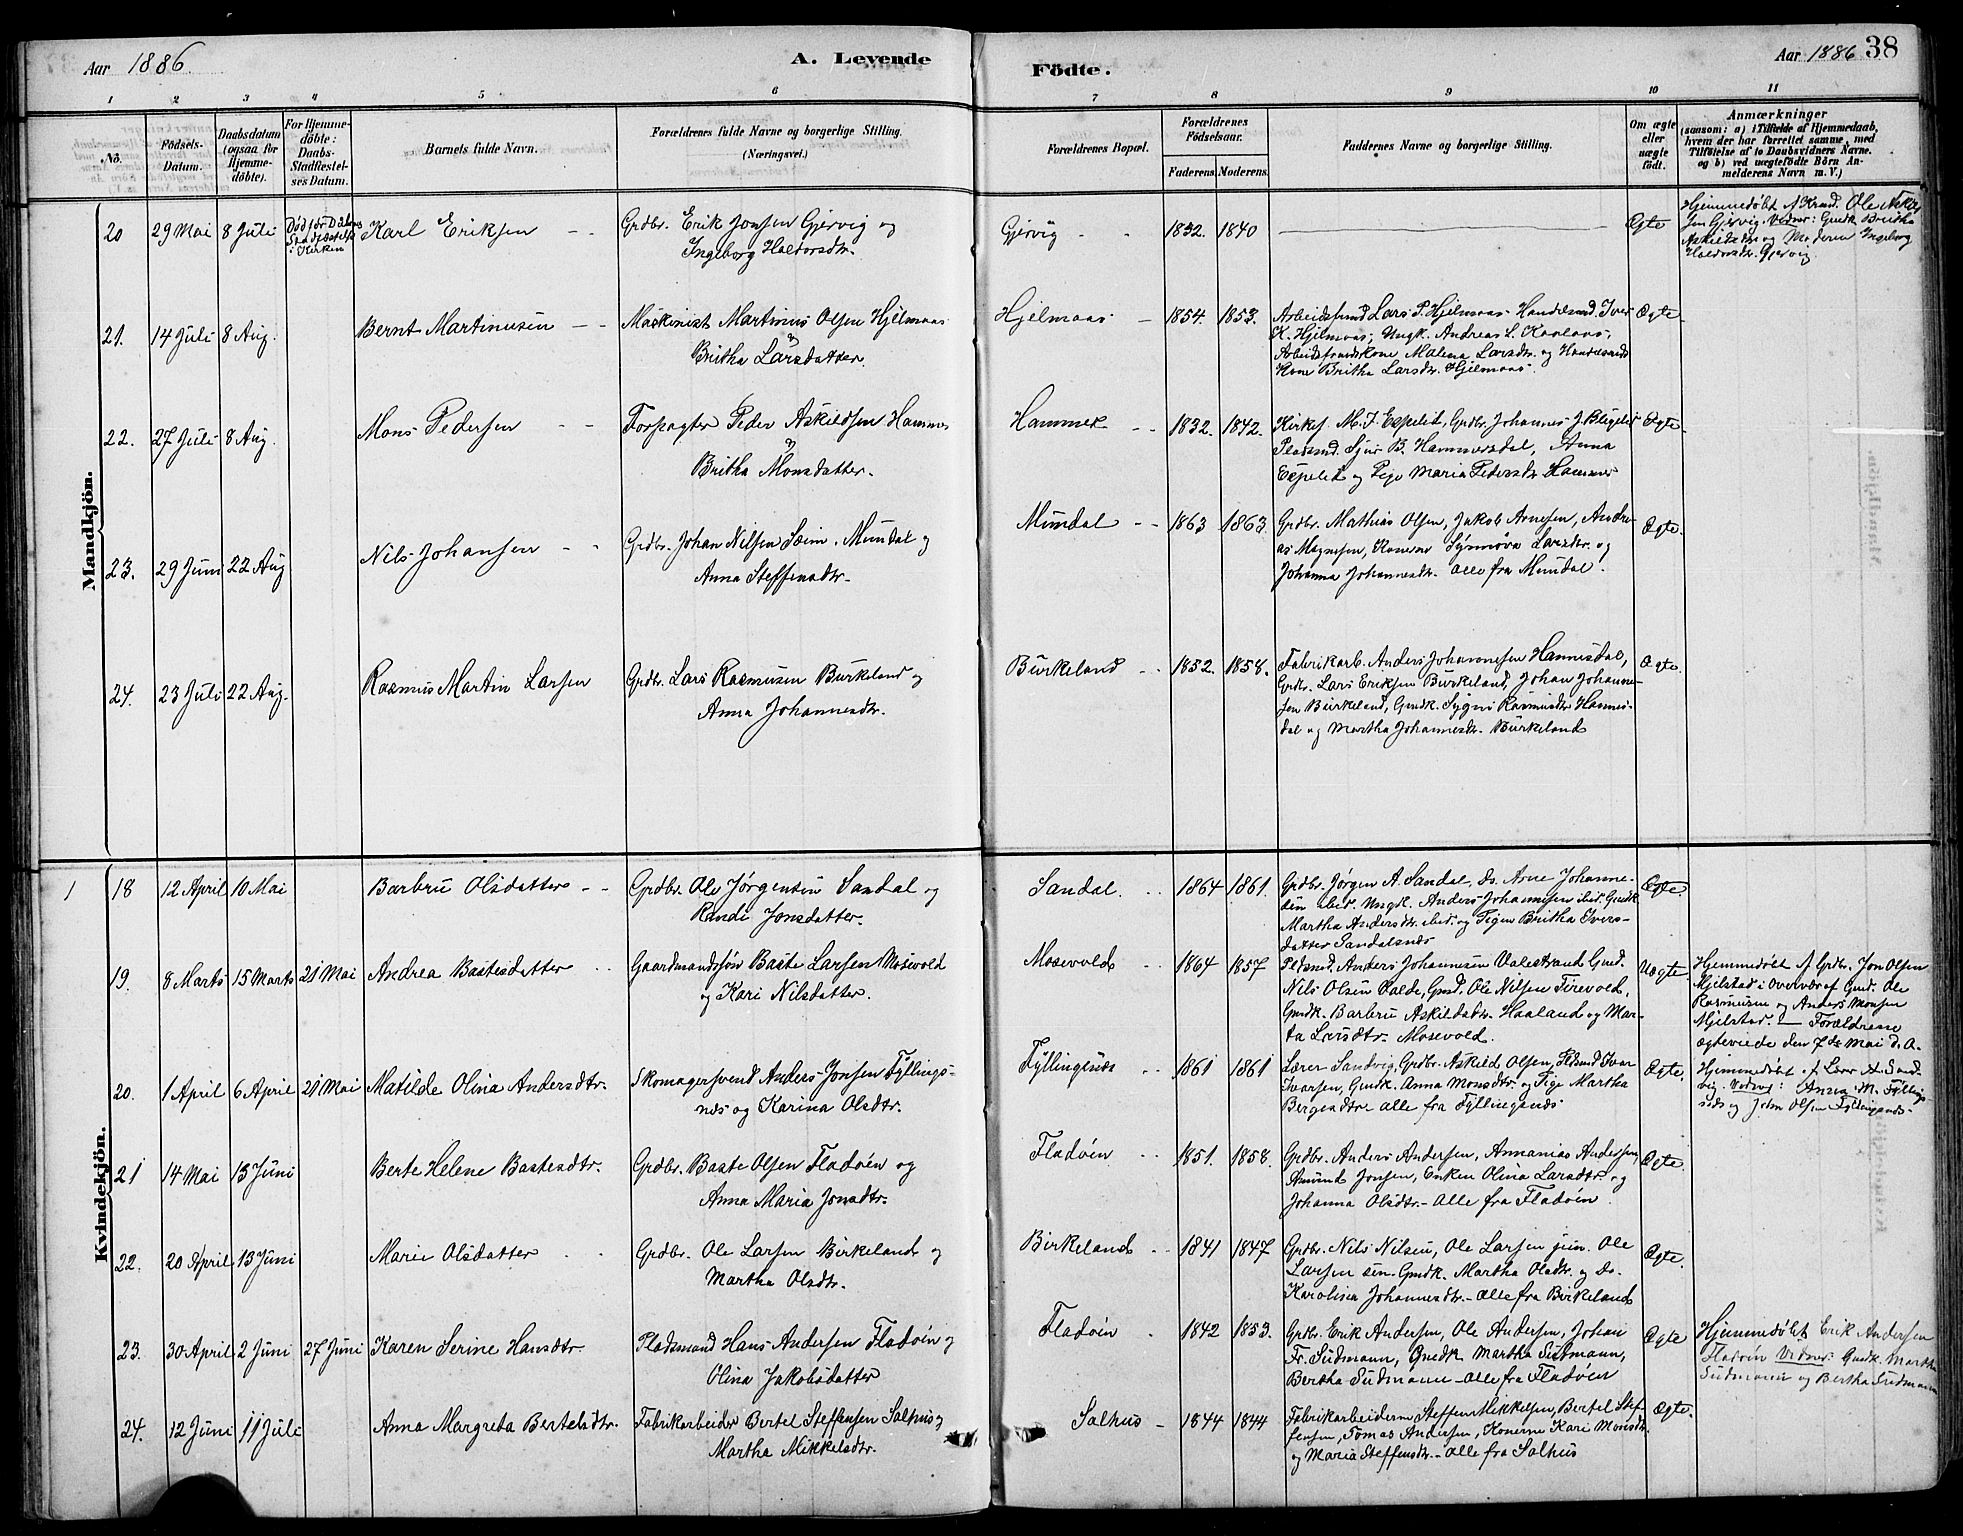 Aar 1886. A. Levende Födte. Aar 1886 38
1 2 3 4 5 6 7 8 9 10 11
No.
Födsels-Datum.
Daabsdatum (ogsaa for Hjemme-döbte).
For Hjemme-döbte: Daabs-Stadfæstel-ses Datum.
Barnets fulde Navn.
Forældrenes fulde Navne og borgerlige Stilling. (Næringsvei.)
Forældrenes Bopæl.
Forældrenes Födselsaar.
Faderens. Moderens.
Faddernes Navne og borgerlige Stilling.
Om ægte eller uægte födt.
Anmærkninger
(saasom: a) i Tilfælde af Hjemmedaab,
hvem der har forrettet samme, med
Tilföielse af to Daabsvidners Navne.
og b) ved uægtefödte Börn An-
melderens Navn m. V.)
Mandkjön.
20 29 Mai 8 Juli Död før Daabens Stadfæstelse i Kirken Karl Eriksen Grdbr. Erik Jonsen Gjervig og
Ingeborg Haldorsdtr.
Gjervig 1832. 1840 Ægte
Hjemmedøbt af Ole
sen Gjervig. Vidner: Gmdk. Britha
Askildsdtr og Moderen Ingeborg
Haldorsdtr. Gjervig.
21. 14 Juli 8 Aug. Bernt Martinusen Maskinist Martinus Olsen Hjelmaas
og
Britha Larsdatter.
Hjelmaas 1854. 1853. Arbeidsfmd Lars P. Hjelmaas Handelsmd. Iver Ægte
K. Hjelmaas, Ungk. Andreas L.
Arbeidsfmandskone Malena Larsdtr. og Handelsmds
Kone Britha Larsdtr. Hjelmaas.
22. 27 Juli 8 Aug. Mons Pedersen Forpagter Peder Askildsen Hammer
og
Britha Monsdatter.
Hammer 1832. 1842. Kirkes. M. J. Espelid, Grdbr. Johannes J. Ægte
Pladsmd. Sjur B. Hammersdal, Anna
Espelid og Pige Maria Pedersdtr Hammer
23. 29 Juni 22 Aug Nils Johansen Grdbr. Johan Nilsen Sæim, Mundal og
Anna Steffensdtr.
Mundal 1863 1863. Grdbr. Mathias Olsen, Jakob Arnesen, Andre- Ægte
as Magnesen, Konerne Synnøva Larsdtr. og
Johanna Johannesdtr. Alle fra Mundal.
24. 23 Juli 22 Aug. Rasmus Martin Larsen Grdbr. Lars Rasmusen Burkeland og
Anna Johannesdtr.
Burkeland 1852. 1858. Fabrikarb. Anders Johannesen Hannisdal, Ægte
Grdbr. Lars Eriksen Burkeland, Johan Johanne-
sen Burkeland, Gmdk. Sygni Rasmusdtr Hannis-
dal og Martha Johannesdtr. Burkeland
Kvindekjön.
1 18 12 April 10 Mai Barbru Olsdatter Grdbr. Ole Jørgensen Sandal og
Randi Jonsdatter.
Sandal. 1864 1861. Grdbr. Jørgen A. Sandal, do. Arne Johanne- Ægte
sen ibid. Ungk. Anders Johannesen ibid. Gmdk
Martha Andersdtr. ibid. og Pigen Britha Ivers-
datter Sandalsnæs
19. 8 Marts 15 Marts 21 Mai Andrea Bastesdatter Gaardmandssøn Baste Larsen Mosevold
og Kari Nilsdatter.
Mosevold 1864 1857 Pldsmd. Anders Johannesen Valestrand Gmd. Uægte
Nils Olsen Valde, Gmd. Ole Nilsen Tirevold,
Gmdk. Barbru Askildsdtr. Haaland og Mar-
ta Larsdtr. Mosevold.
Hjemmedøbt af Grdbr. Jon Olsen
Mjelstad i Overvær af Gmd. Ole
Rasmusen og Anders Monsen
Mjelstad. — Forældrene
ægteviede den 7de Mai d. A.
20. 1 April 6 April 21 Mai Matilde Olina Andersdtr. Skomagersvend Anders Jonsen Fyllings-
næs og Karina Olsdtr.
Fyllingsnæs 1861 1861 Lærer Sandvig, Grdbr. Askild Olsen, Pldsmd Ivar Ægte.
Ivarsen, Gmdk. Anna Monsdtr. og Pige Martha
Bergesdtr alle fra Fyllingsnæs
Hjemmedøbt af Lærer A. Sand-
vig. Vidner: Anna M. Fyllings-
næs og John Olsen Fyllingsnæs.
21 14 Mai 13 Juni Berte Helene Bastesdtr. Grdbr. Baste Olsen Fladøen og
Anna Maria Jonsdtr.
Fladøen 1851. 1858. Grdbr. Anders Andersen, Annanias Andersen, Ægte.
Amund Jonsen, Enken Olina Larsdtr. og
Johanna Olsdtr. – Alle fra Fladøen
22. 20 April 13 Juni Marie Olsdatter Grdbr. Ole Larsen Birkeland og
Martha Olsdtr.
Birkeland 1841 1847 Grdbr. Nils Nilsen, Ole Larsen jun. Ole Ægte.
Larsen sen. Gmdk. Martha Olsdtr. og do.
Karolina Johannesdtr. – Alle fra Birkeland
23. 30 April 2 Juni 27 Juni Karen Serine Hansdtr. Pladsmand Hans Andersen Fladøen og
Olina Jakobsdatter
Fladøen 1842 1853. Grdbr. Erik Andersen, Ole Andersen, Johan Ægte
Fr. Sudmann, Gmdk Martha Sudmann,
Bertha Sudmann – Alle fra Fladøen
Hjemmedøbt Erik Andersen
Fladøen Vidner: Gmdk. Martha
Sudmann og Bertha Sudmann
24. 12 Juni 11 Juli Anna Margreta Bertelsdtr. Fabrikarbeider Bertel Steffensen Salhus og
Martha Mikkelsdtr.
Salhus 1844 1844 Fabrikarbeiderne Steffen Mikkelsen, Bertel Stef- Ægte.
fensen, Tomas Andersen, Konerne Kari Monsdtr.
og Maria Steffensdtr. – Alle fra Salhus